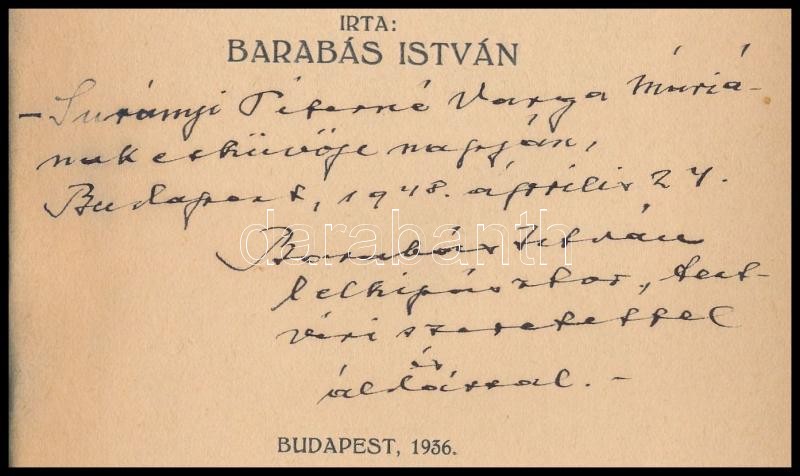 IRTA:
BARABÁS ISTVÁN
– Surányi Péterné Varga Máriá-
nak esküvője napján,
Budapest, 1948. április 24.
darabanth
Barabás István
lelkipásztor, test-
véri szeretettel
és
áldással. –
BUDAPEST, 1936.